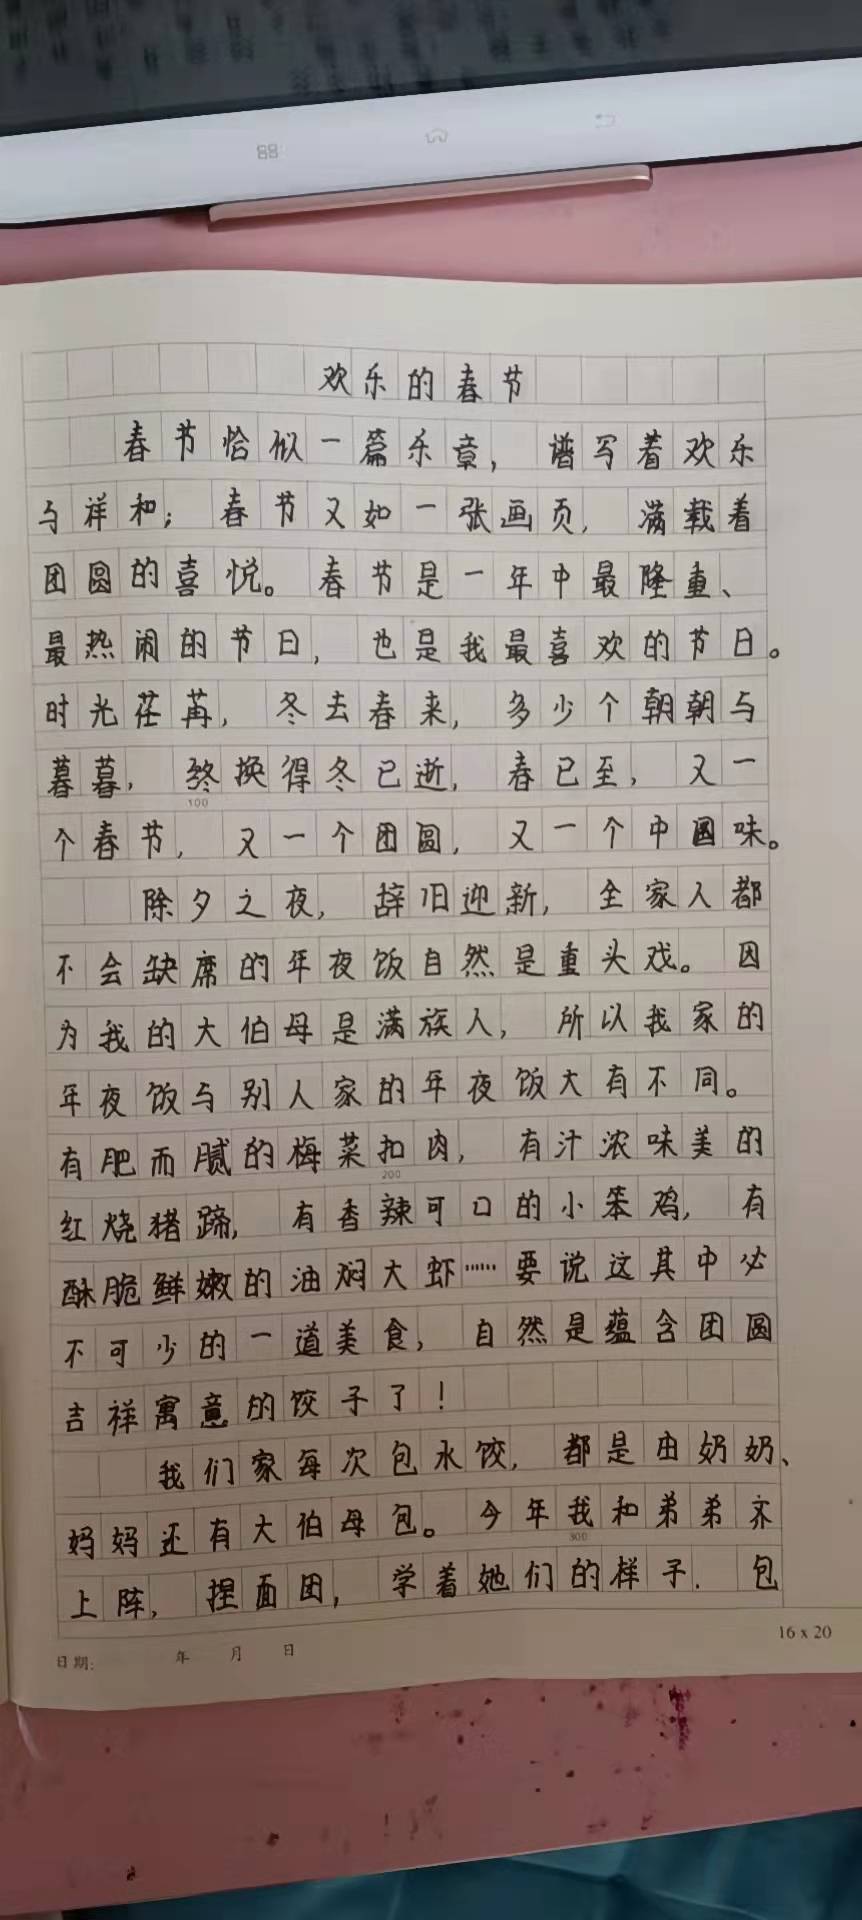 欢乐的春节
春节恰似一篇乐章，谱写着欢乐
与祥和；春节又如一张画页，满载着
团圆的喜悦。春节是一年中最隆重、
最热闹的节日，也是我最喜欢的节日。
时光荏苒，冬去春来，多少个朝朝与
暮暮，终换得冬已逝，春已至，又一
100
个春节，又一个团圆，又一个中国味。
除夕之夜，辞旧迎新，全家人都
不会缺席的年夜饭自然是重头戏。因
为我的大伯母是满族人，所以我家的
年夜饭与别人家的年夜饭大有不同。
有肥而腻的梅菜扣肉，有汁浓味美的
200
红烧猪蹄，有香辣可口的小笨鸡，有
酥脆鲜嫩的油焖大虾……要说这其中必
不可少的一道美食，自然是蕴含团圆
吉祥寓意的饺子了！
我们家每次包水饺，都是由奶奶、
妈妈还有大伯母包。今年我和弟弟齐
300
上阵，捏面团，学着她们的样子．包
日期： 年 月 日
16 x 20